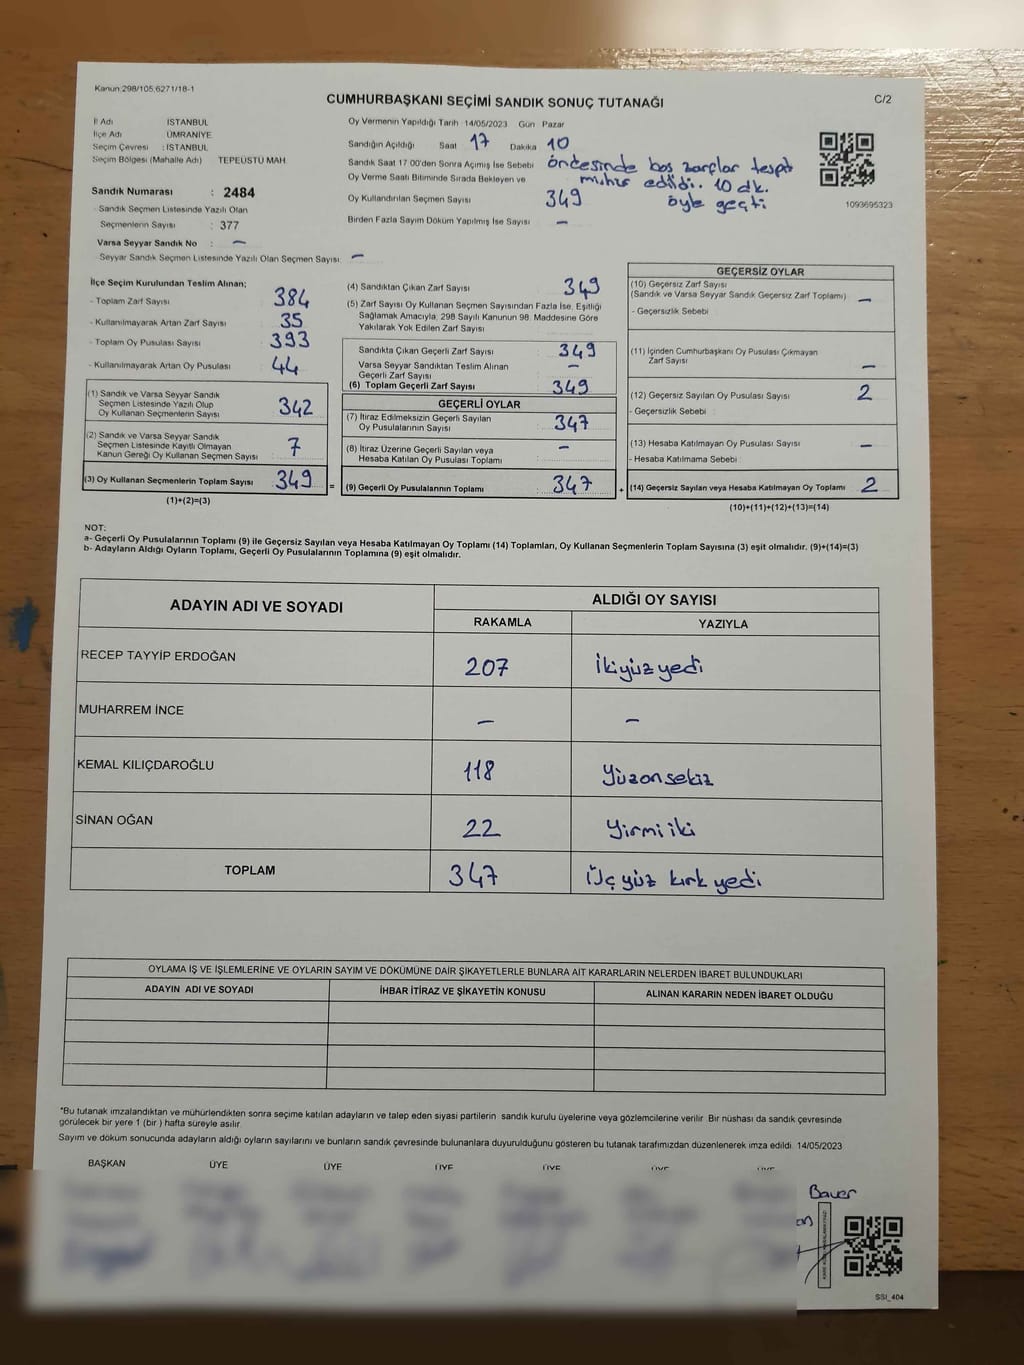 Kanun:298/105,6271/18-1
CUMHURBAŞKANI SEÇİMİ SANDIK SONUÇ TUTANAĞI
C/2
İl Adı İSTANBUL
İlçe Adı ÜMRANİYE
Seçim Çevresi : İSTANBUL
Seçim Bölgesi (Mahalle Adı) TEPEÜSTÜ MAH
Sandık Numarası : 2484
Sandık Seçmen Listesinde Yazılı Olan
Seçmenlerin Sayısı : 377
Varsa Seyyar Sandık No : –
Seyyar Sandık Seçmen Listesinde Yazılı Olan Seçmen Sayısı: –
Oy Vermenin Yapıldığı Tarih 14/05/2023 Gün Pazar
Sandığın Açıldığı Saat 17 Dakika 10
Sandık Saat 17.00'den Sonra Açımış İse Sebebi öncesinde boş zarflar tespit
Oy Verme Saati Bitiminde Sırada Bekleyen ve mühür edildi. 10 dk.
Oy Kullandırılan Seçmen Sayısı 349 öyle geçti
Birden Fazla Sayım Döküm Yapılmış İse Sayısı –
1093695323
İlçe Seçim Kurulundan Teslim Alınan;
- Toplam Zarf Sayısı 384
- Kullanılmayarak Artan Zarf Sayısı 35
- Toplam Oy Pusulası Sayısı 393
- Kullanılmayarak Artan Oy Pusulası 44
(1) Sandık ve Varsa Seyyar Sandık
Seçmen Listesinde Yazılı Olup
Oy Kullanan Seçmenlerin Sayısı 342
(2) Sandık ve Varsa Seyyar Sandık
Seçmen Listesinde Kayıtlı Olmayan
Kanun Gereği Oy Kullanan Seçmen Sayısı 7
(3) Oy Kullanan Seçmenlerin Toplam Sayısı 349
(1)+(2)=(3)
(4) Sandıktan Çıkan Zarf Sayısı 349
(5) Zarf Sayısı Oy Kullanan Seçmen Sayısından Fazla İse, Eşitliği
Sağlamak Amacıyla; 298 Sayılı Kanunun 98. Maddesine Göre
Yakılarak Yok Edilen Zarf Sayısı
Sandıkta Çıkan Geçerli Zarf Sayısı 349
Varsa Seyyar Sandıktan Teslim Alınan
Geçerli Zarf Sayısı –
(6) Toplam Geçerli Zarf Sayısı 349
GEÇERLİ OYLAR
(7) İtiraz Edilmeksizin Geçerli Sayılan
Oy Pusulalarının Sayısı 347
(8) İtiraz Üzerine Geçerli Sayılan veya
Hesaba Katılan Oy Pusulası Toplamı –
= (9) Geçerli Oy Pusulalarının Toplamı 347 +
GEÇERSİZ OYLAR
(10) Geçersiz Zarf Sayısı
(Sandık ve Varsa Seyyar Sandık Geçersiz Zarf Toplamı) –
- Geçersizlik Sebebi
(11) İçinden Cumhurbaşkanı Oy Pusulası Çıkmayan
Zarf Sayısı –
(12) Geçersiz Sayılan Oy Pusulası Sayısı 2
- Geçersizlik Sebebi
(13) Hesaba Katılmayan Oy Pusulası Sayısı –
- Hesaba Katılmama Sebebi
(14) Geçersiz Sayılan veya Hesaba Katılmayan Oy Toplamı 2
(10)+(11)+(12)+(13)=(14)
NOT:
a- Geçerli Oy Pusulalarının Toplamı (9) ile Geçersiz Sayılan veya Hesaba Katılmayan Oy Toplamı (14) Toplamları, Oy Kullanan Seçmenlerin Toplam Sayısına (3) eşit olmalıdır. (9)+(14)=(3)
b- Adayların Aldığı Oyların Toplamı, Geçerli Oy Pusulalarının Toplamına (9) eşit olmalıdır.
ADAYIN ADI VE SOYADI ALDIĞI OY SAYISI
RAKAMLA YAZIYLA
RECEP TAYYİP ERDOĞAN 207 İkiyüzyedi
MUHARREM İNCE – –
KEMAL KILIÇDAROĞLU 118 Yüzonsekiz
SİNAN OĞAN 22 Yirmiiki
TOPLAM 347 Üçyüz kırk yedi
OYLAMA İŞ VE İŞLEMLERİNE VE OYLARIN SAYIM VE DÖKÜMÜNE DAİR ŞİKAYETLERLE BUNLARA AİT KARARLARIN NELERDEN İBARET BULUNDUKLARI
ADAYIN ADI VE SOYADI İHBAR İTİRAZ VE ŞİKAYETİN KONUSU ALINAN KARARIN NEDEN İBARET OLDUĞU
*Bu tutanak imzalandıktan ve mühürlendikten sonra seçime katılan adayların ve talep eden siyasi partilerin sandık kurulu üyelerine veya gözlemcilerine verilir. Bir nüshası da sandık çevresinde
görülecek bir yere 1 (bir ) hafta süreyle asılır.
Sayım ve döküm sonucunda adayların aldığı oyların sayılarını ve bunların sandık çevresinde bulunanlara duyurulduğunu gösteren bu tutanak tarafımızdan düzenlenerek imza edildi. 14/05/2023
BAŞKAN ÜYE ÜYE ÜYE ÜYE ÜYE ÜYE
Baver
SSI_404